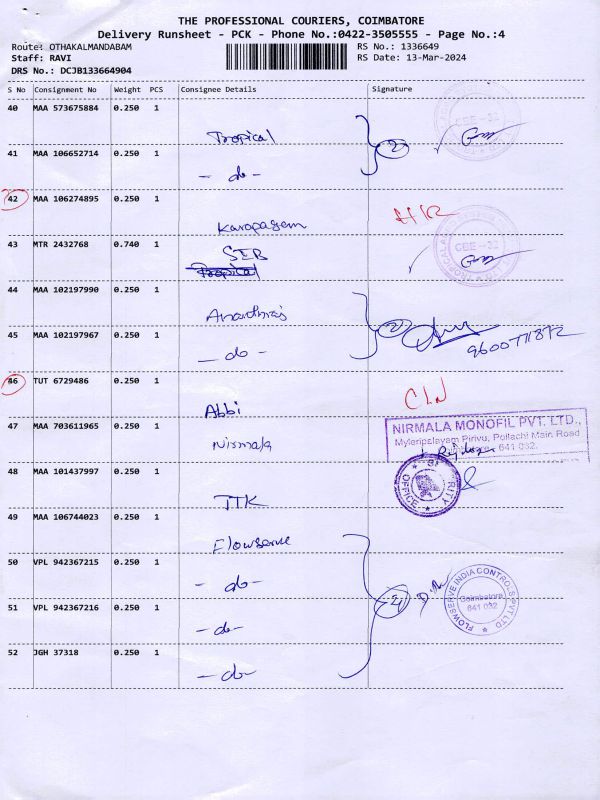 THE PROFESSIONAL COURIERS, COIMBATORE
Delivery Runsheet - PCK - Phone No.:0422-3505555 - Page No.:4
Route: OTHAKALMANDABAM
RS No.: 1336649
Staff: RAVI
RS Date: 13-Mar-2024
DRS No.: DCJB133664904
S No Consignment No Weight PCS Consignee Details Signature
40 MAA 573675884 0.250 1
Tropical
41 MAA 106652714 0.250 1
- do -
42 MAA 106274895 0.250 1
Karopagem
43 MTR 2432768 0.740 1
SEB
Tropical
CBE - 32
44 MAA 102197990 0.250 1
45 MAA 102197967 0.250 1
- do -
9600771872
46 TUT 6729486 0.250 1
Abbi
CLN
47 MAA 703611965 0.250 1
Nirmala
NIRMALA MONOFIL PVT. LTD.,
Myleripalayam Pirivu, Pollachi Main Road
641 032.
48 MAA 101437997 0.250 1
TTK
SECURITY OFFICE
49 MAA 106744023 0.250 1
Flowserve
50 VPL 942367215 0.250 1
- do -
51 VPL 942367216 0.250 1
- do -
FLOWSERVE INDIA CONTROLS PVT LTD
Coimbatore
641 032
52 JGH 37318 0.250 1
- do -